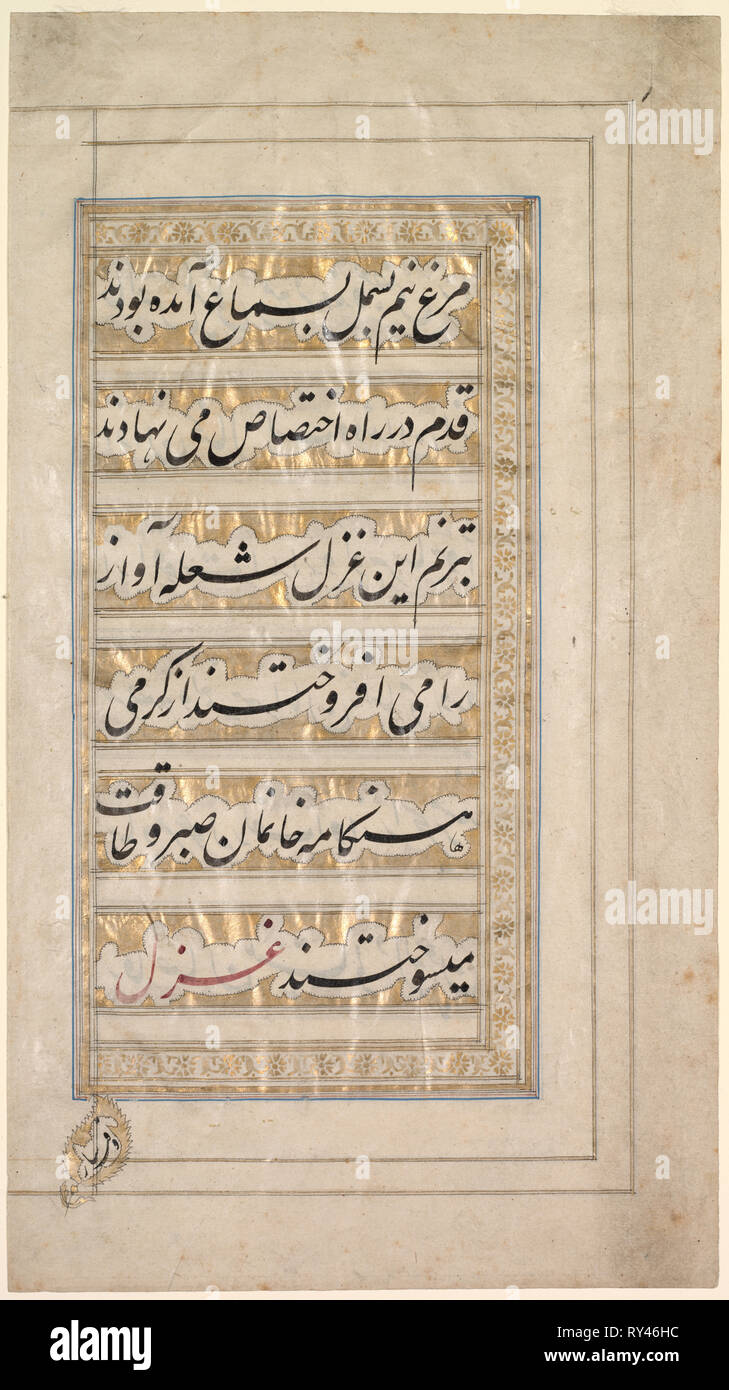 مرغ نیم بسمل بسماع آمده بودند
قدم در راه اختصاص می نهادند
بترنم این غزل شعله آواز
را می افروختند از کرمی
هنکامه خانمان صبر و طاقت
میسوختند غزل
alamy
alamy
Image ID: RY46HC
www.alamy.com